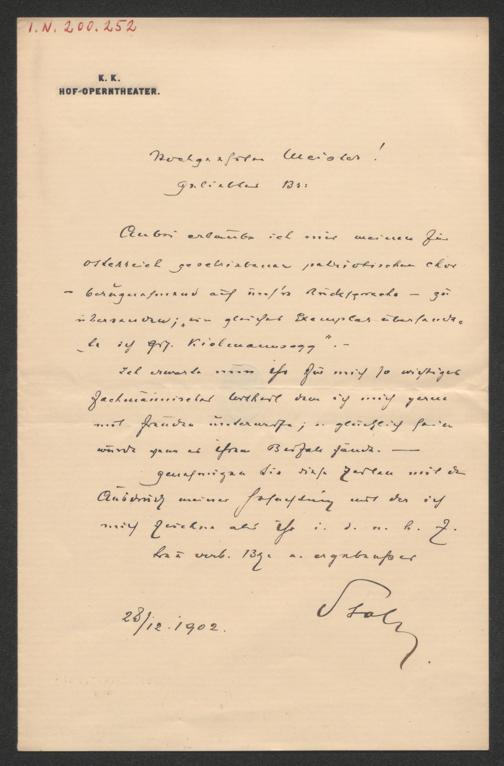 I.N. 200.252
K. K.
HOF-OPERNTHEATER.
Hochgeehrter Meister!
Geliebter Br:
Anbei erlaube ich mir meinen für
Österreich geschriebenen patriotischen Chor
– bezugnehmend auf uns're Rücksprache – zu
übersenden; "ein gleiches Exemplar übersende-
te ich Grf. Kielmannsegg". –
Ich erwarte nun Ihr für mich so wichtiges
fachmännisches Urtheil dem ich mich gerne
mit Freuden unterwerfe; u. glücklich sein
würde wenn es Ihren Beifall fände. —
genehmigen Sie diese Zeilen mit dem
Ausdruck meiner Hochachtung mit der ich
mich zeichne als Ihr i. d. u. h. Z.
treu verb. Br u. ergebenster
28/12. 1902.